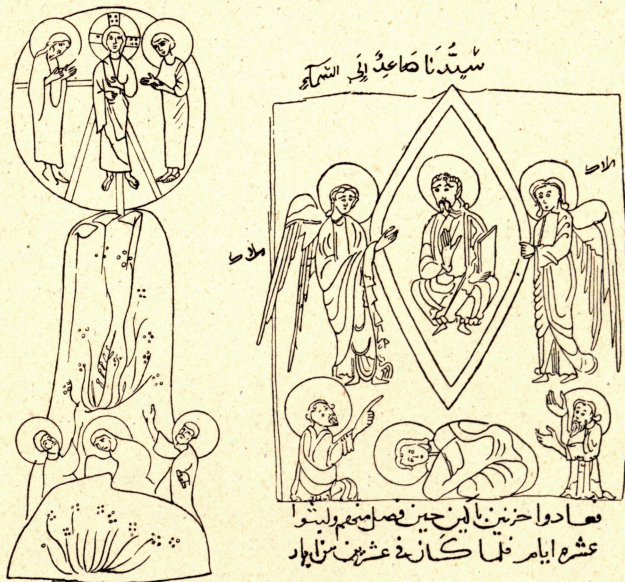 سيدنا صاعد إلى السماء
ملاك
ملاك
فعادوا حزنين باكين حين فصل منهم ولبثوا
عشره ايام فلما كان في عشرين من ايار